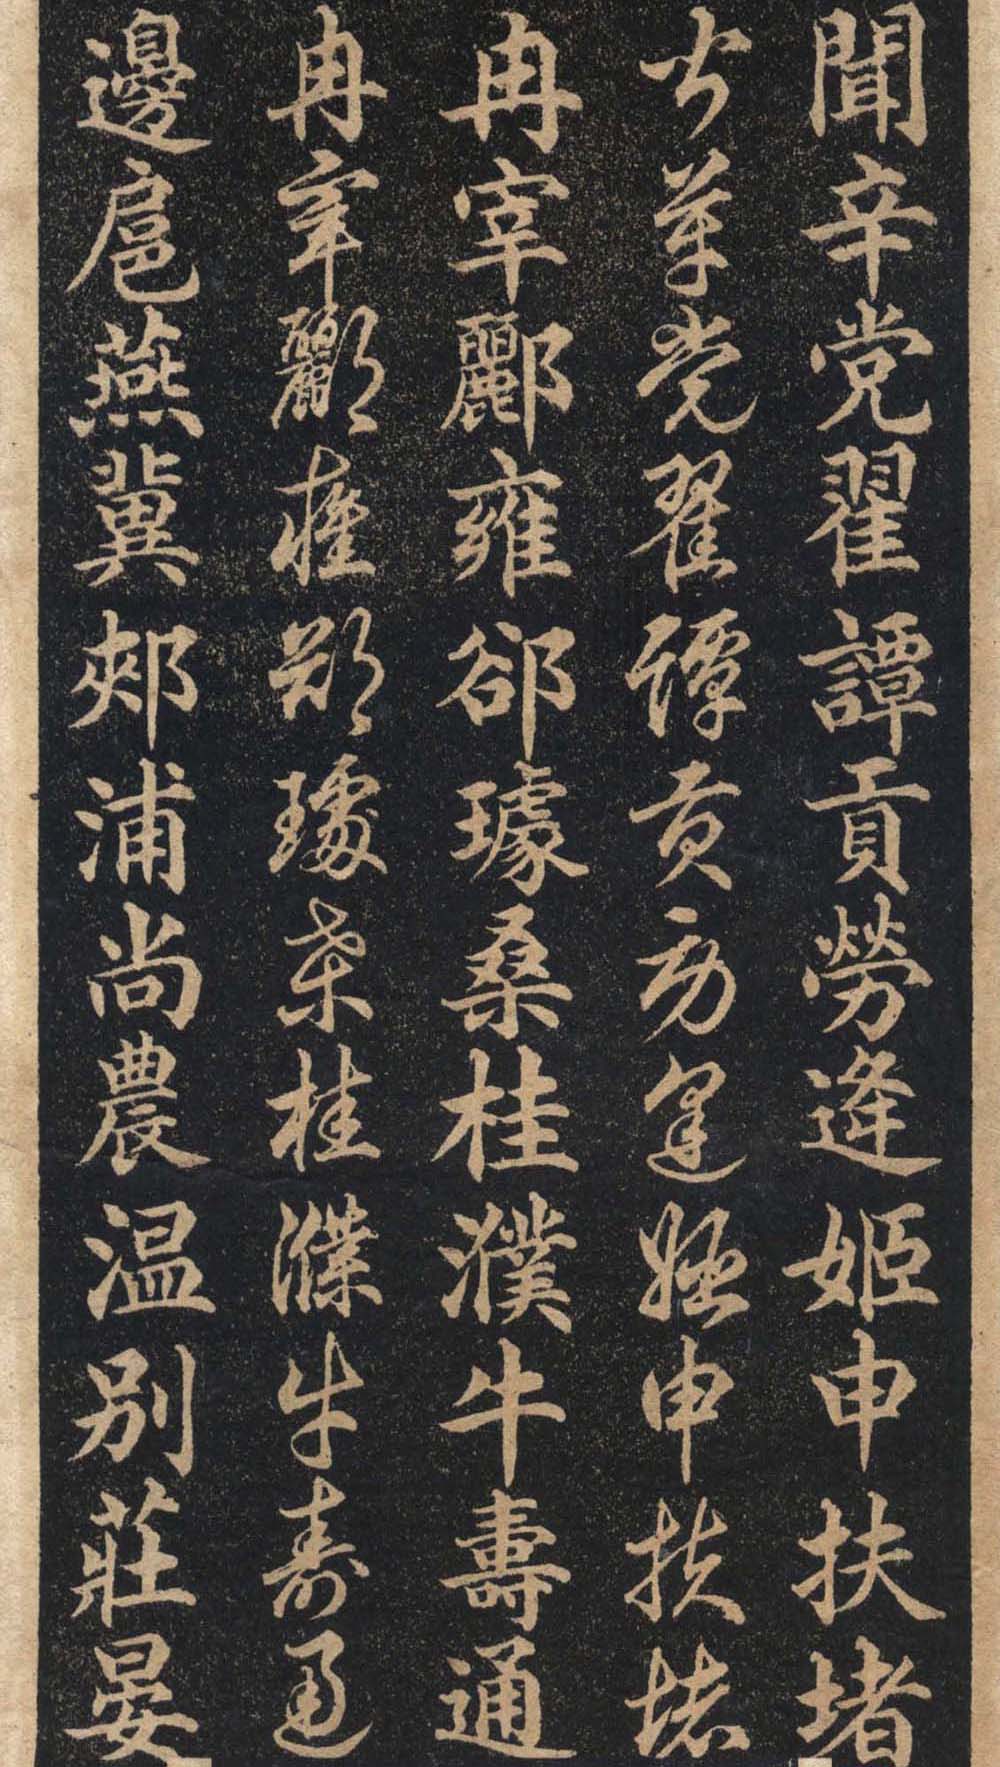 聞辛党翟譚貢勞逄姬申扶堵
聞辛党翟譚貢勞逄姬申扶堵
冉宰酈雍郤璩桑桂濮牛壽通
冉宰酈雍郤璩桑桂濮牛壽通
邊扈燕冀郟浦尚農温别莊晏